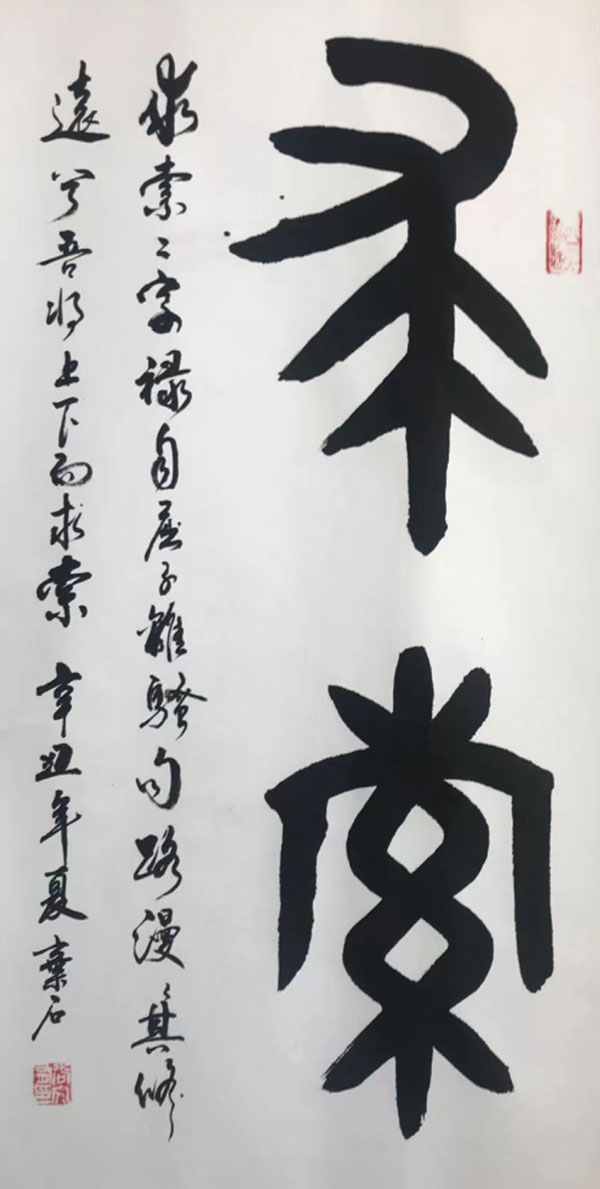 求索
求索二字禄自屈子離騷句路漫〻其修
遠兮吾將上下而求索 辛丑年夏 棄石